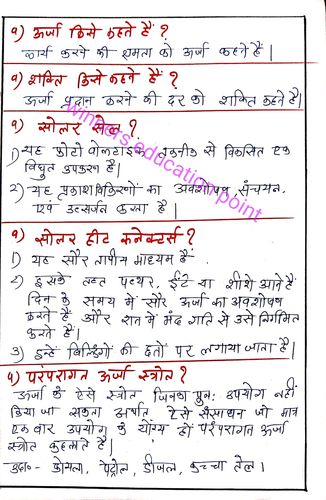 १) ऊर्जा किसे कहते हैं ?
कार्य करने की क्षमता को ऊर्जा कहते हैं |
१) शक्ति किसे कहते हैं ?
ऊर्जा प्रदान करने की दर को शक्ति कहते हैं |
१) सोलर सेल ?
1) यह फोटो वोल्टाइक तकनीक से विकसित एक
विद्युत उपकरण है |
2) यह प्रकाश विकिरणों का अवशोषण, संचयन,
एवं उत्सर्जन करता है |
१) सोलर हीट कनेक्टर्स ?
1) यह सौर तापीय माध्यम है
2) इसके तहत पत्थर, ईंटे या शीशे आते हैं
दिन के समय में सौर ऊर्जा का अवशोषण
करते हैं और रात में मंद गति से उसे निर्गमित
करते है |
3) इन्हें बिल्डिंगों की छतों पर लगाया जाता है |
१) परंपरागत ऊर्जा स्त्रोत ?
ऊर्जा के ऐसे स्त्रोत जिनका पुनः उपयोग नहीं
किया जा सकता अर्थात् ऐसे संसाधन जो मात्र
एक बार उपयोग के योग्य हों परंपरागत ऊर्जा
स्त्रोत कहलाते हैं |
उदा०- कोयला, पेट्रोल, डीजल, कच्चा तेल |
winners education point